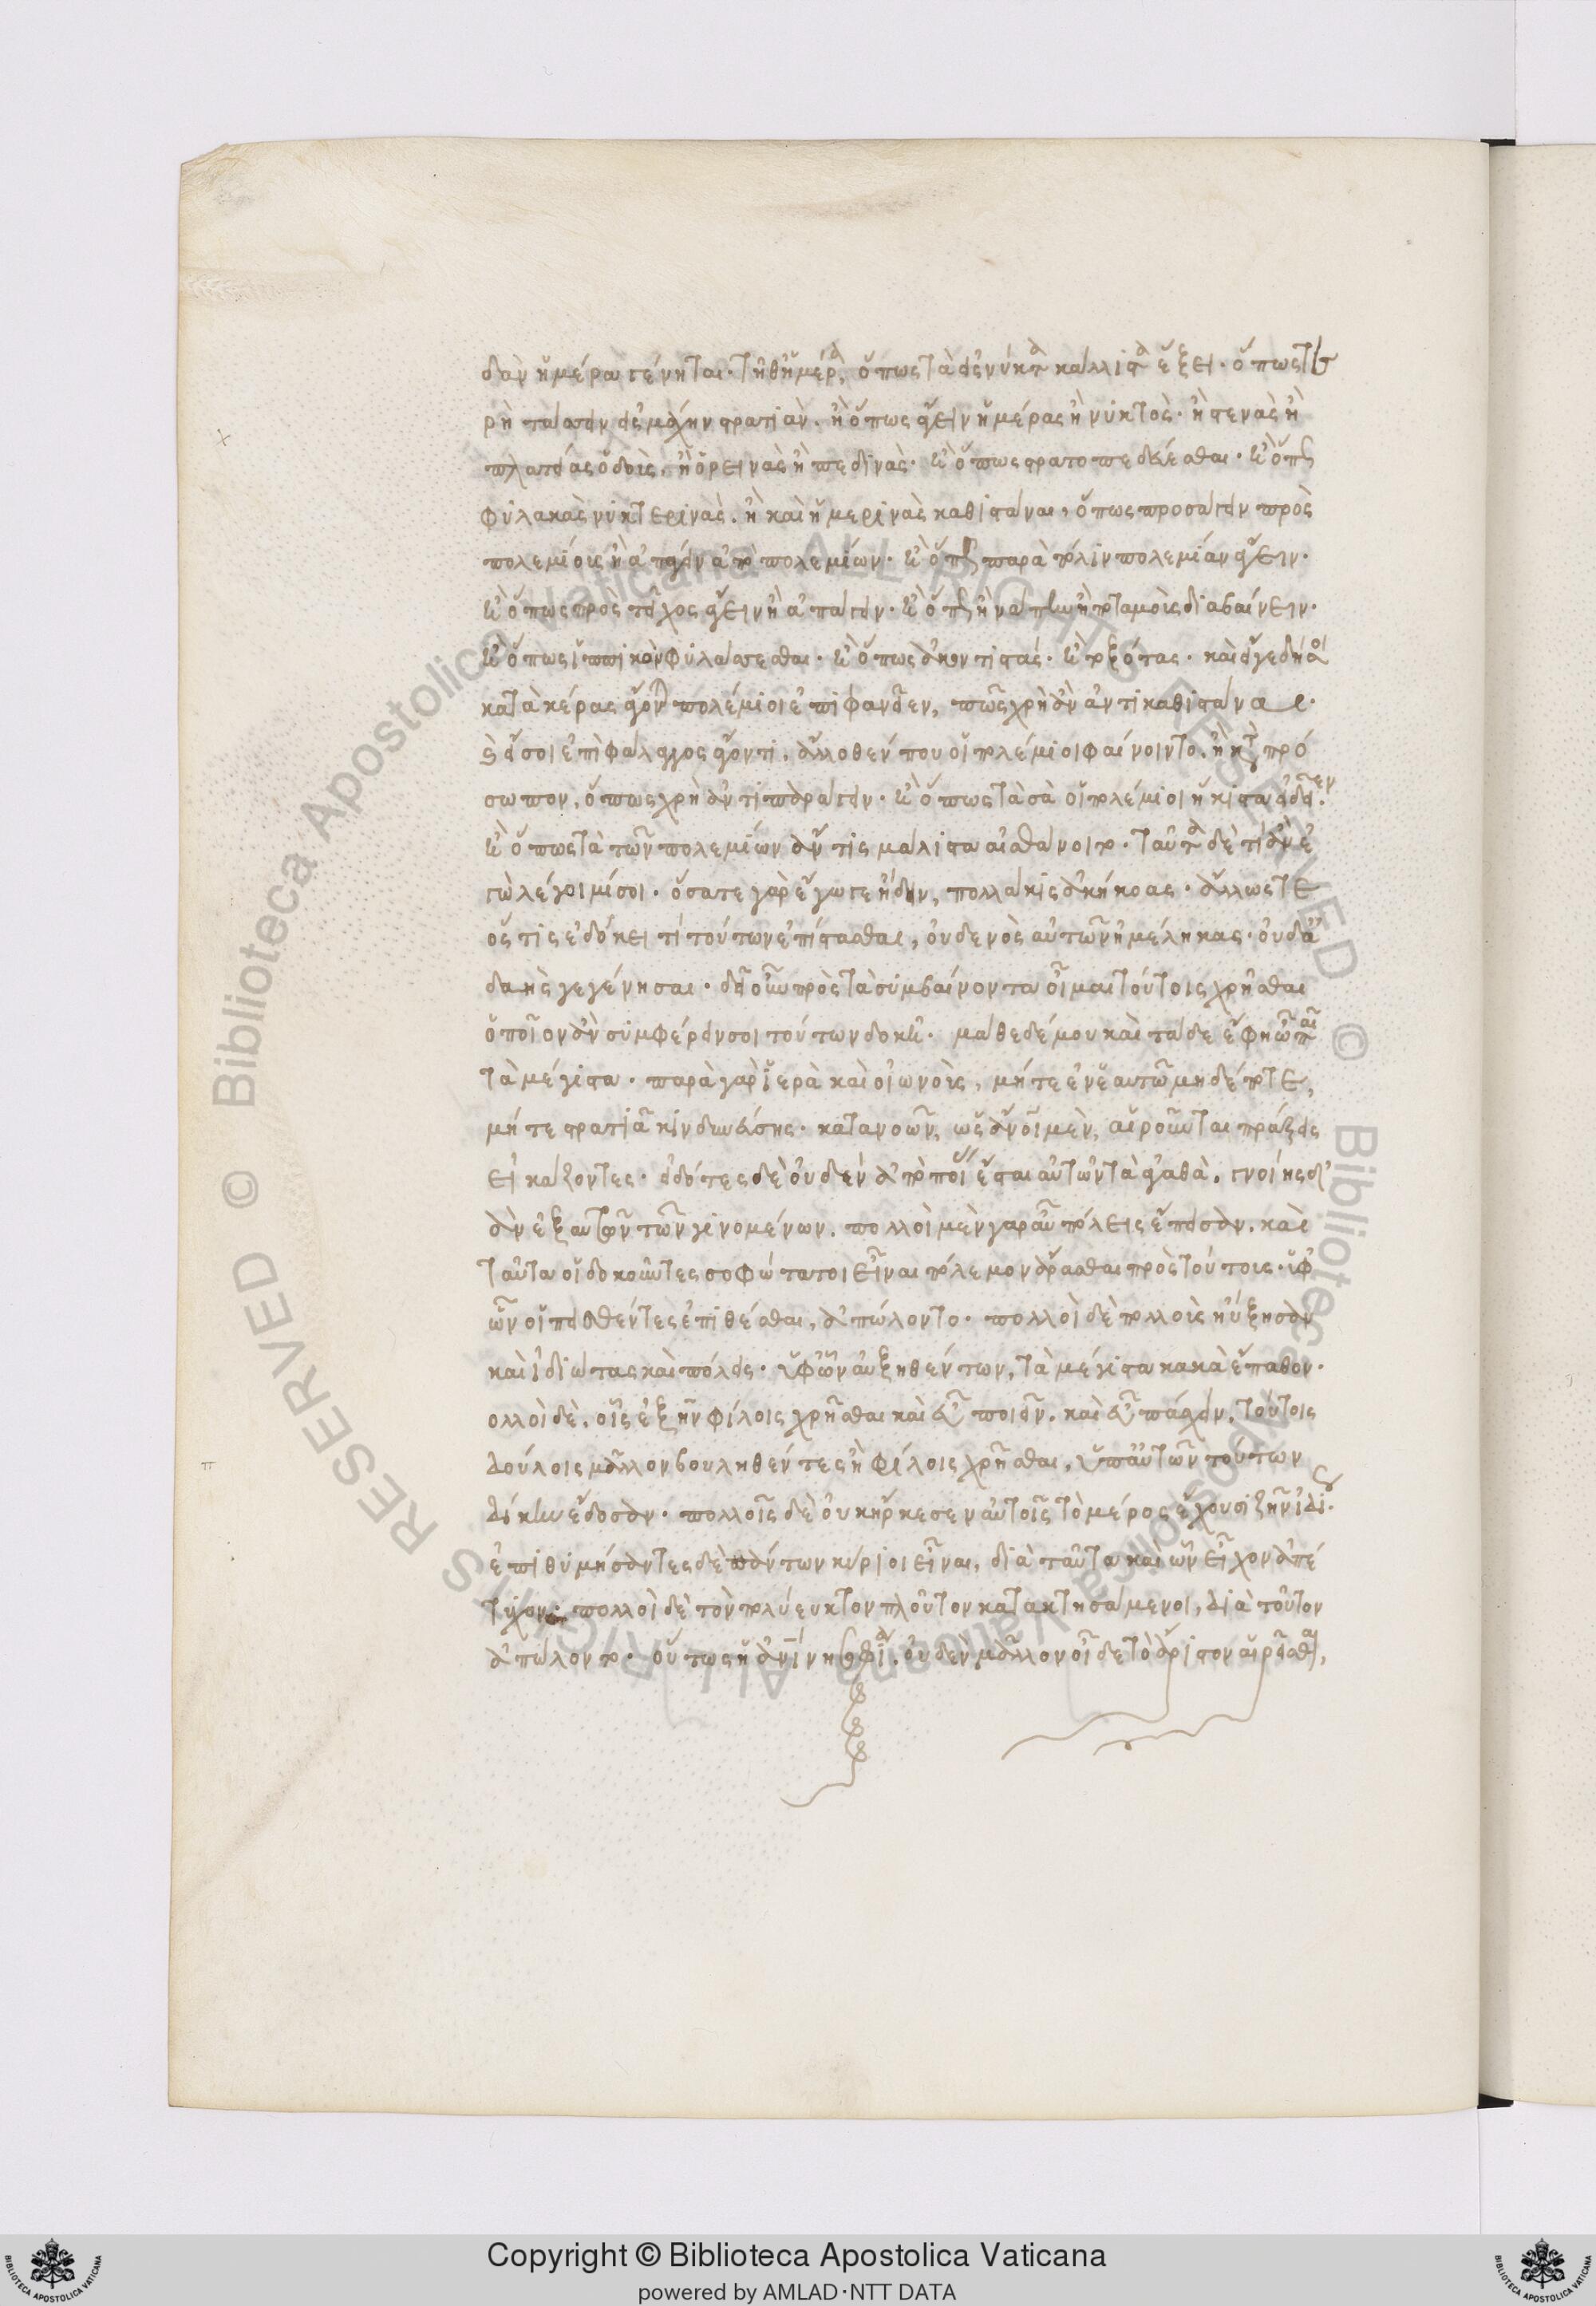 δὰν ἡμέρα γένηται. τῇ δ' ἡμέρᾳ, ὅπως τὰ εἰς νύκτα κάλλιστα ἕξει. ὅπως δὲ
ρὴ τάττειν εἰς μάχην στρατιὰν. ἢ ὅπως ἄγειν ἡμέρας ἢ νυκτὸς. ἢ στενὰς ἢ
πλατείας ὁδοὺς, ἢ ὀρεινὰς ἢ πεδινὰς. ἢ ὅπως στρατοπεδεύεσθαι. ἢ ὅπως
φυλακὰς νυκτερινὰς. ἢ καὶ ἡμερινὰς καθιστάναι, ὅπως προσάγειν πρὸς
πολεμίους ἢ ἀπάγειν ἀπὸ πολεμίων. ἢ ὅπως παρὰ πόλιν πολεμίαν ἄγειν.
ἢ ὅπως πρὸς τεῖχος ἄγειν ἢ ἀπάγειν. ἢ ὅπως ἢ νάπην ἢ ποταμοὺς διαβαίνειν.
ἢ ὅπως ἱππικὸν φυλάττεσθαι. ἢ ὅπως ἀκοντιστάς. ἢ τοξότας. καὶ εἴγε δή σοι
κατὰ κέρας ἄγοντι πολέμιοι ἐπιφανεῖεν, πῶς χρὴ ἀντικαθιστάναι.
καὶ εἴ σοι ἐπὶ φάλαγγος ἄγοντι, ἄλλοθέν που οἱ πολέμιοι φαίνοιντο. ἢ κατὰ πρό
σωπον, ὅπως χρὴ ἀντιπαράγειν. ἢ ὅπως τὰ σὰ οἱ πολέμιοι ἥκιστα εἰδεῖεν.
ἢ ὅπως τὰ τῶν πολεμίων ἄν τις μάλιστα αἰσθάνοιτο. ταῦτα δὲ τί ἂν ἐ
γὼ λέγοιμί σοι. ὅσα τε γὰρ ἔγωγε ᾔδειν, πολλάκις ἀκήκοας. ἄλλως τε
ὅς τις ἐδόκει τί τούτων ἐπίστασθαι, οὐδενὸς αὐτῶν ἠμέληκας. οὐδ' ἀ
δαὴς γεγένησαι. δεῖ οὖν πρὸς τὰ συμβαίνοντα οἶμαι τούτοις χρῆσθαι
ὁποῖον ἂν συμφέρειν σοι τούτων δοκῇ. μάθε δέ μου καὶ τάδε ἔφη ὦ παῖ
τὰ μέγιστα. παρὰ γὰρ ἱερὰ καὶ οἰωνοὺς, μήτε ἐν ἑαυτῶ μηδέποτε,
μήτε στρατιᾶ κινδυνεύσης. κατανοῶν, ὡς ἄνοι μὲν, αἱροῦνται πράξεις
εἰκάζοντες. εἰδότες δὲ οὐδὲν ἀπὸ ποίας ἔσται αὐτῶν τὰ ἀγαθὰ. γνοίης δ'
ἂν ἐξ αὐτῶν τῶν γινομένων. πολλοὶ μὲν γὰρ αὖ πόλεις ἔπεισαν. καὶ
ταῦτα οἱ δοκοῦντες σοφώτατοι εἶναι πόλεμον ἄρασθαι πρὸς τούτους. ὑφ'
ὧν οἱ πεισθέντες ἐπιθέσθαι, ἀπώλοντο. πολλοὶ δὲ πολλοὺς ηὔξησαν
καὶ ἰδιώτας καὶ πόλεις. ὑφ' ὧν αὐξηθέντων, τὰ μέγιστα κακὰ ἔπαθον.
ολλοὶ δὲ. οἷς ἐξῆν φίλοις χρῆσθαι καὶ εὖ ποιεῖν. καὶ εὖ πάσχειν, τούτοις
δούλοις μᾶλλον βουληθέντες ἢ φίλοις χρῆσθαι, ὑπ' αὐτῶν τούτων
δίκην ἔδοσαν. πολλοῖς δὲ οὐκ ἤρκεσεν αὐτοῖς τὸ μέρος ἔχουσι ζῆν ἡδέως.
ἐπιθυμήσαντες δὲ πάντων κύριοι εἶναι, διὰ ταῦτα καὶ ὧν εἶχον ἀπέ
τυχον. πολλοὶ δὲ τὸν πολύευκτον πλοῦτον κατακτησάμενοι, διὰ τοῦτον
ἀπώλοντο. οὕτως ἡ ἀνίνη σοφία. οὐδὲν μᾶλλον οἶδε τὸ ἄριστον αἱρεῖσθαι,